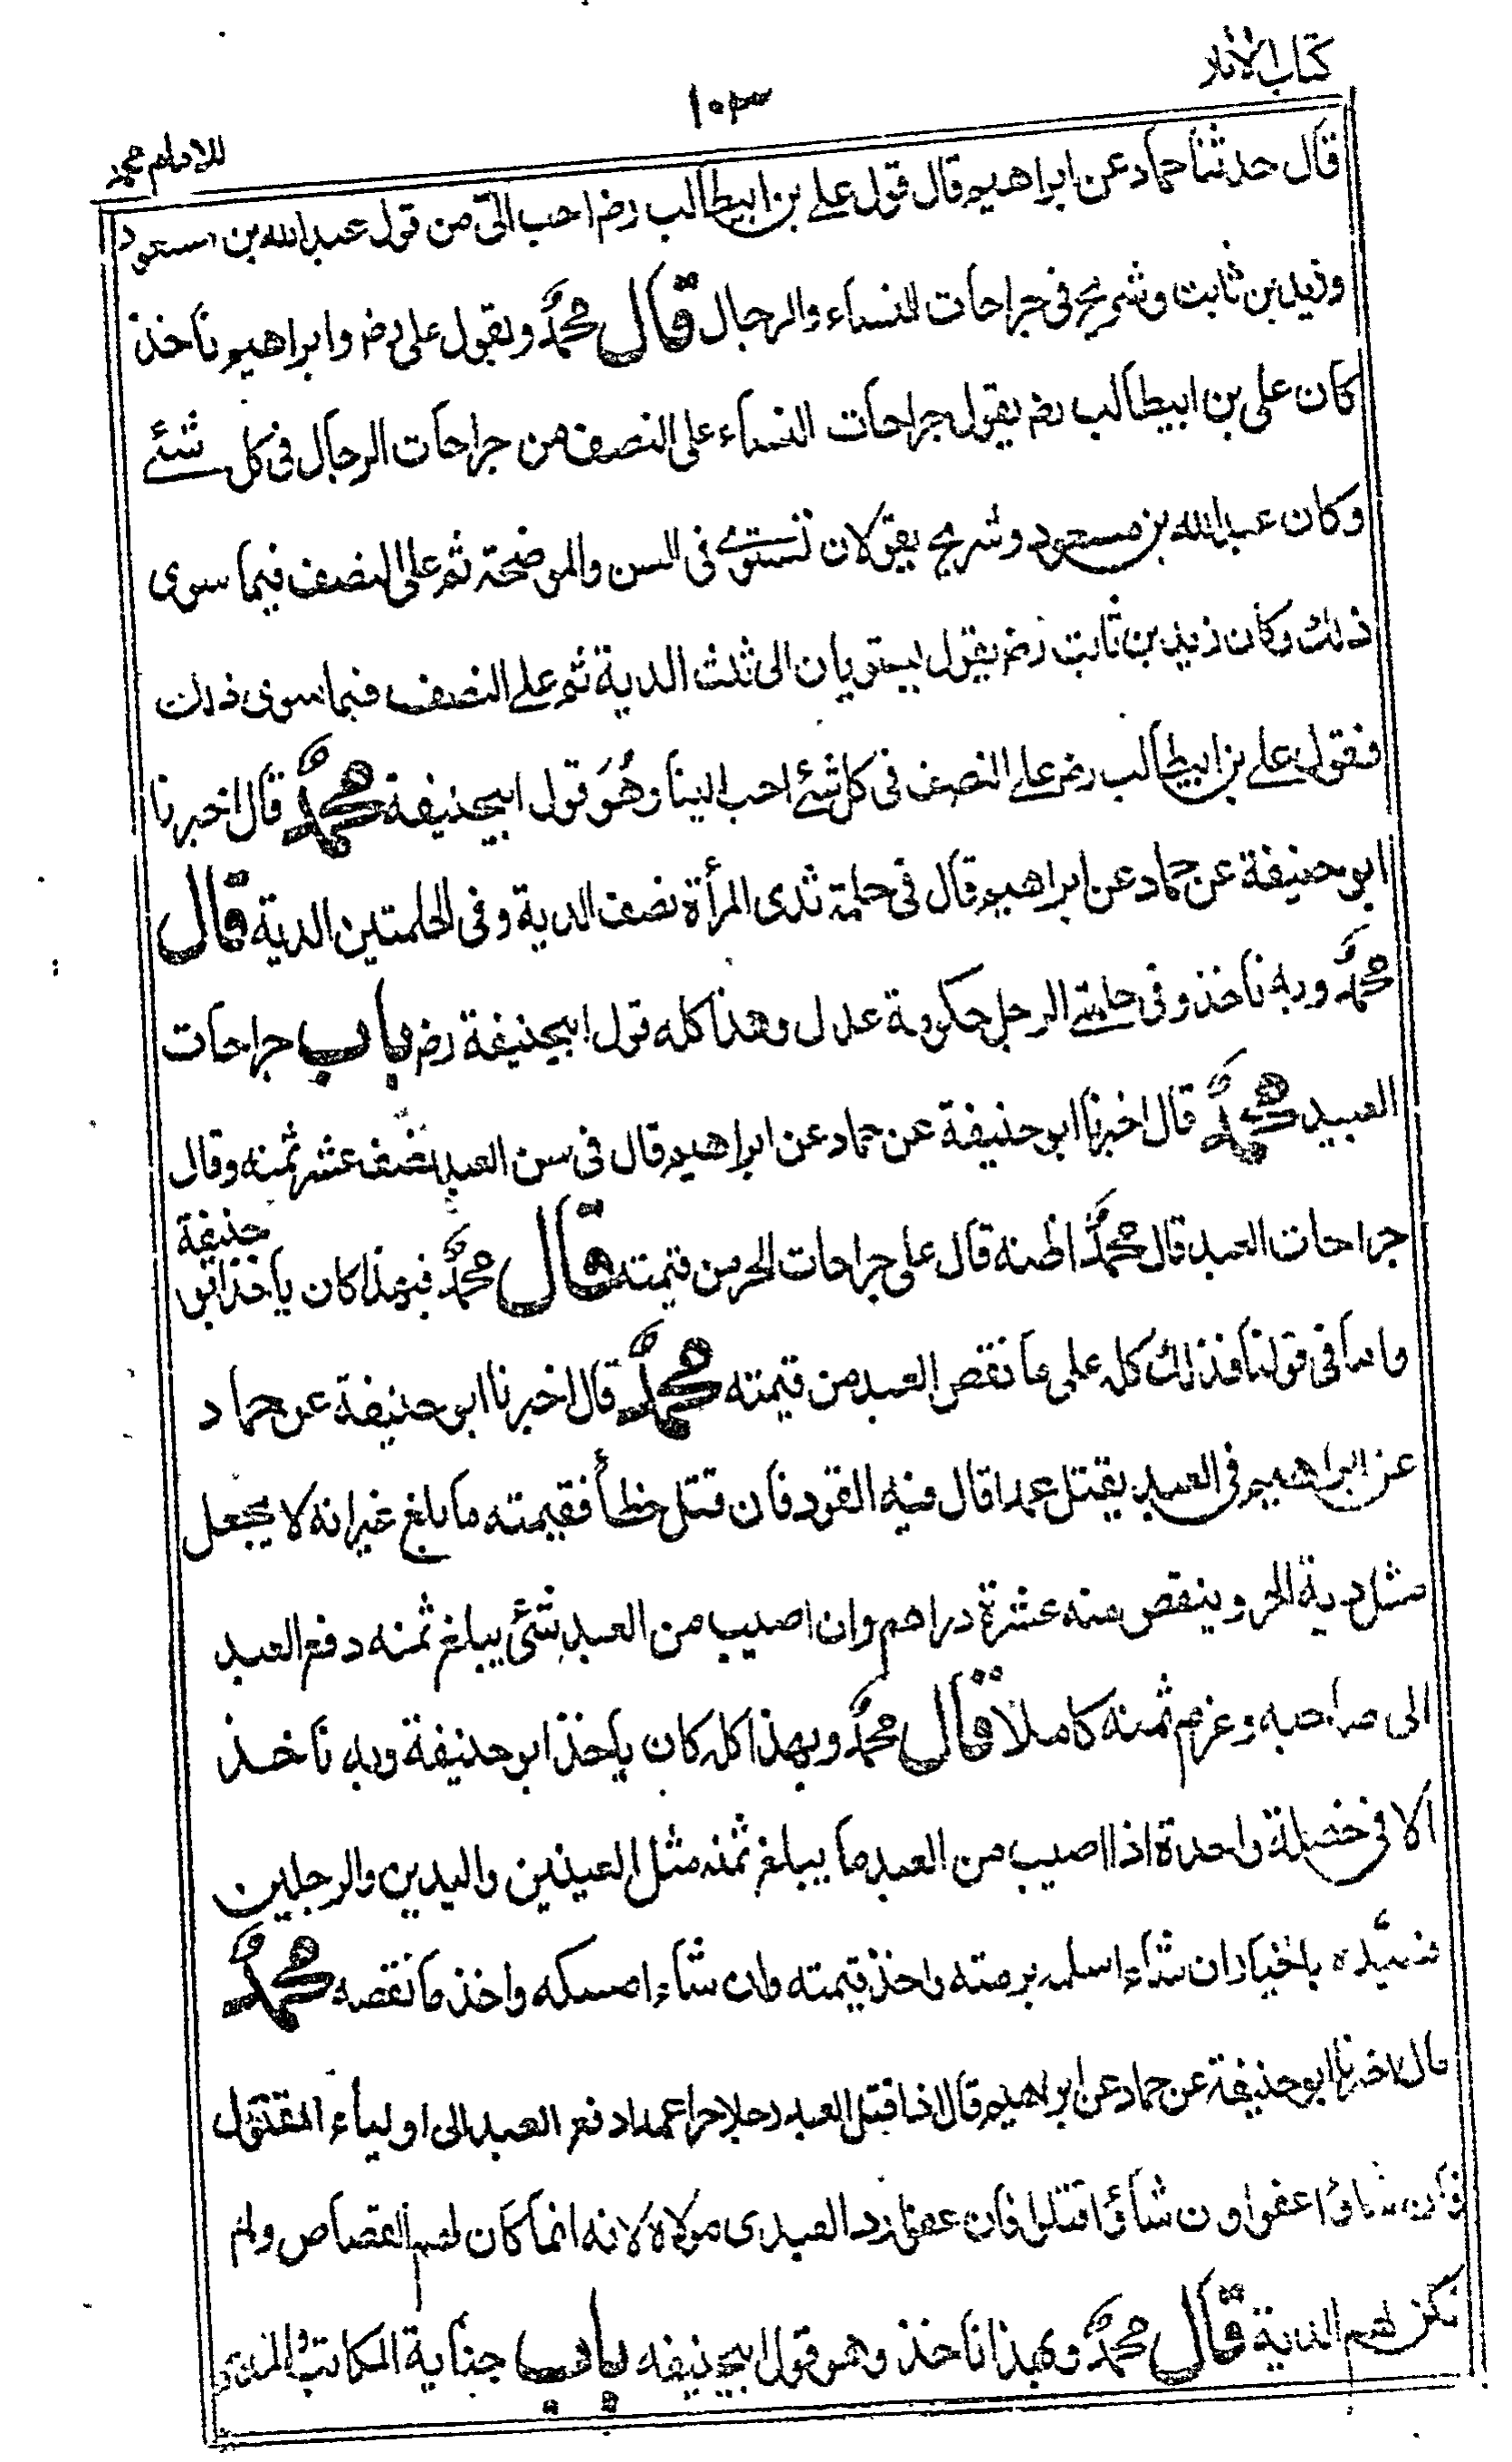 كتاب الآثار
١٠٣
للامام محمد
قال حدثنا حماد عن ابراهيم قال قول علي بن ابيطالب رضـ احب الىّ من قول عبد الله بن مسعود
وزيد بن ثابت وشريح في جراحات النساء والرجال قال محمدٌ وبقول على رضـ وابراهيم ناخذ
كان على بن ابيطالب رضـ يقول جراحات النساء على النصف من جراحات الرجال في كل شئے
وكان عبدالله بن مسعود وشريح يقولان تستوے في السن والموضحة ثم على النصف فيما سوى
ذلك وكان زيد بن ثابت رضـ يقول يستويان الى ثلث الدية ثم علے النصف فيما سوى ذلك
فقول علے بن ابيطالب رضـ علے النصف في كل شئے احب الينا وهُوَ قول ابيحنيفة محمدٌ قال اخبرنا
ابو حنيفة عن حماد عن ابراهيم قال في حلمة ثدى المرأة نصف الدية وفي الحلمتين الدية قال
محمدٌ وبه ناخذ وفي حلمتے الرجل حكومة عدل وهذا كله قول ابيحنيفة رضـ باب جراحات
العبيد محمدٌ قال اخبرنا ابو حنيفة عن حماد عن ابراهيم قال في سن العبد نصف عشر ثمنه وقال
جراحات العبد قال محمدٌ اظنه قال على جراحات الحر من قيمته قال محمدٌ فبهذا كان ياخذ ابو حنيفة
واما في قولنا فذلك كله على ما نقص العبد من قيمته محمدٌ قال اخبرنا ابو حنيفة عن حماد
عن ابراهيم في العبد يقتل عمدا قال فيه القود فان قتل خطأ فقيمته ما بلغ غير انه لا يجعل
مثل دية الحر وينقص منه عشرة دراهم وان اصيب من العبد شئ يبلغ ثمنه دفع العبد
الى صاحبه وغرم ثمنه كاملا قال محمدٌ وبهذا كله كان ياخذ ابو حنيفة وبه ناخذ
الا في خصلة واحدة اذا اصيب من العبد ما يبلغ ثمنه مثل العينين واليدين والرجلين
فسيّده بالخيار ان شاء اسلمه برمته واخذ قيمته وان شاء امسكه واخذ ما نقصه محمدٌ
قال اخبرنا ابو حنيفة عن حماد عن ابراهيم قال اذا قتل العبد رجلا حرا عمدا دفع العبد الى اولياء المقتول
فان شاؤا عفوا وان شائوا قتلوا فان عفوا رد العبد الى مولاه لانه انما كان لهم القصاص ولم
تكن لهم الدية قال محمدٌ وبهذا ناخذ وهو قول ابيحنيفه باب جناية المكاتب والمدبر